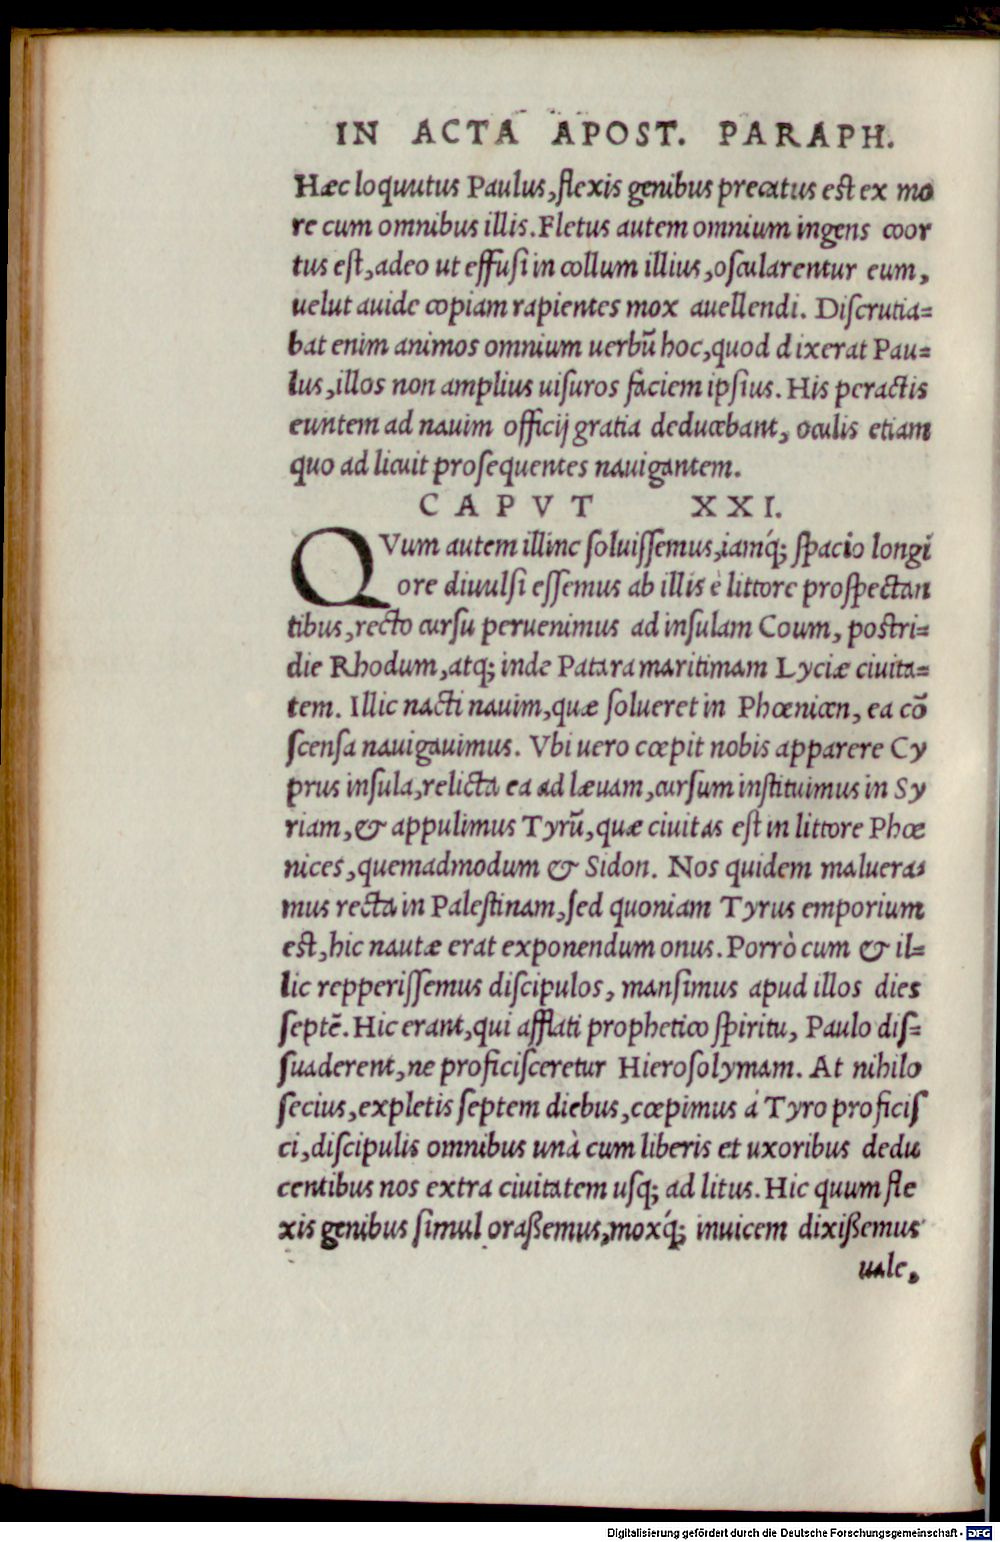 IN ACTA APOST. PARAPH.
Hæc loquutus Paulus, flexis genibus precatus est ex mo
re cum omnibus illis. Fletus autem omnium ingens coor
tus eſt, adeo ut effuſi in collum illius, oſcularentur eum,
uelut auide copiam rapientes mox auellendi. Diſcrutia=
bat enim animos omnium uerbũ hoc, quod dixerat Pau=
lus, illos non amplius uiſuros faciem ipſius. His peractis
euntem ad nauim officij gratia deducebant, oculis etiam
quo ad licuit proſequentes nauigantem.
CAPVT XXI.
QVum autem illinc ſoluiſſemus, iamq́; ſpacio longi
ore diuulſi eſſemus ab illis è littore proſpectan
tibus, recto curſu peruenimus ad inſulam Coum, poſtri=
die Rhodum, atq; inde Patara maritimam Lyciæ ciuita=
tem. Illic nacti nauim, quæ ſolueret in Phœnicen, ea cõ
ſcenſa nauigauimus. Vbi uero cœpit nobis apparere Cy
prus inſula, relicta ea ad læuam, curſum inſtituimus in Sy
riam, & appulimus Tyrũ, quæ ciuitas eſt in littore Phœ
nices, quemadmodum & Sidon. Nos quidem maluera=
mus recta in Paleſtinam, ſed quoniam Tyrus emporium
eſt, hic nautæ erat exponendum onus. Porrò cum & il=
lic repperiſſemus diſcipulos, manſimus apud illos dies
ſeptẽ. Hic erant, qui afflati prophetico ſpiritu, Paulo diſ=
ſuaderent, ne proficiſceretur Hieroſolymam. At nihilo
ſecius, expletis ſeptem diebus, cœpimus á Tyro proficiſ
ci, diſcipulis omnibus unà cum liberis et uxoribus dedu
centibus nos extra ciuitatem uſq; ad litus. Hic quum fle
xis genibus ſimul oraßemus, moxq́; inuicem dixißemus
uale,
Digitalisierung gefördert durch die Deutsche Forschungsgemeinschaft - DFG